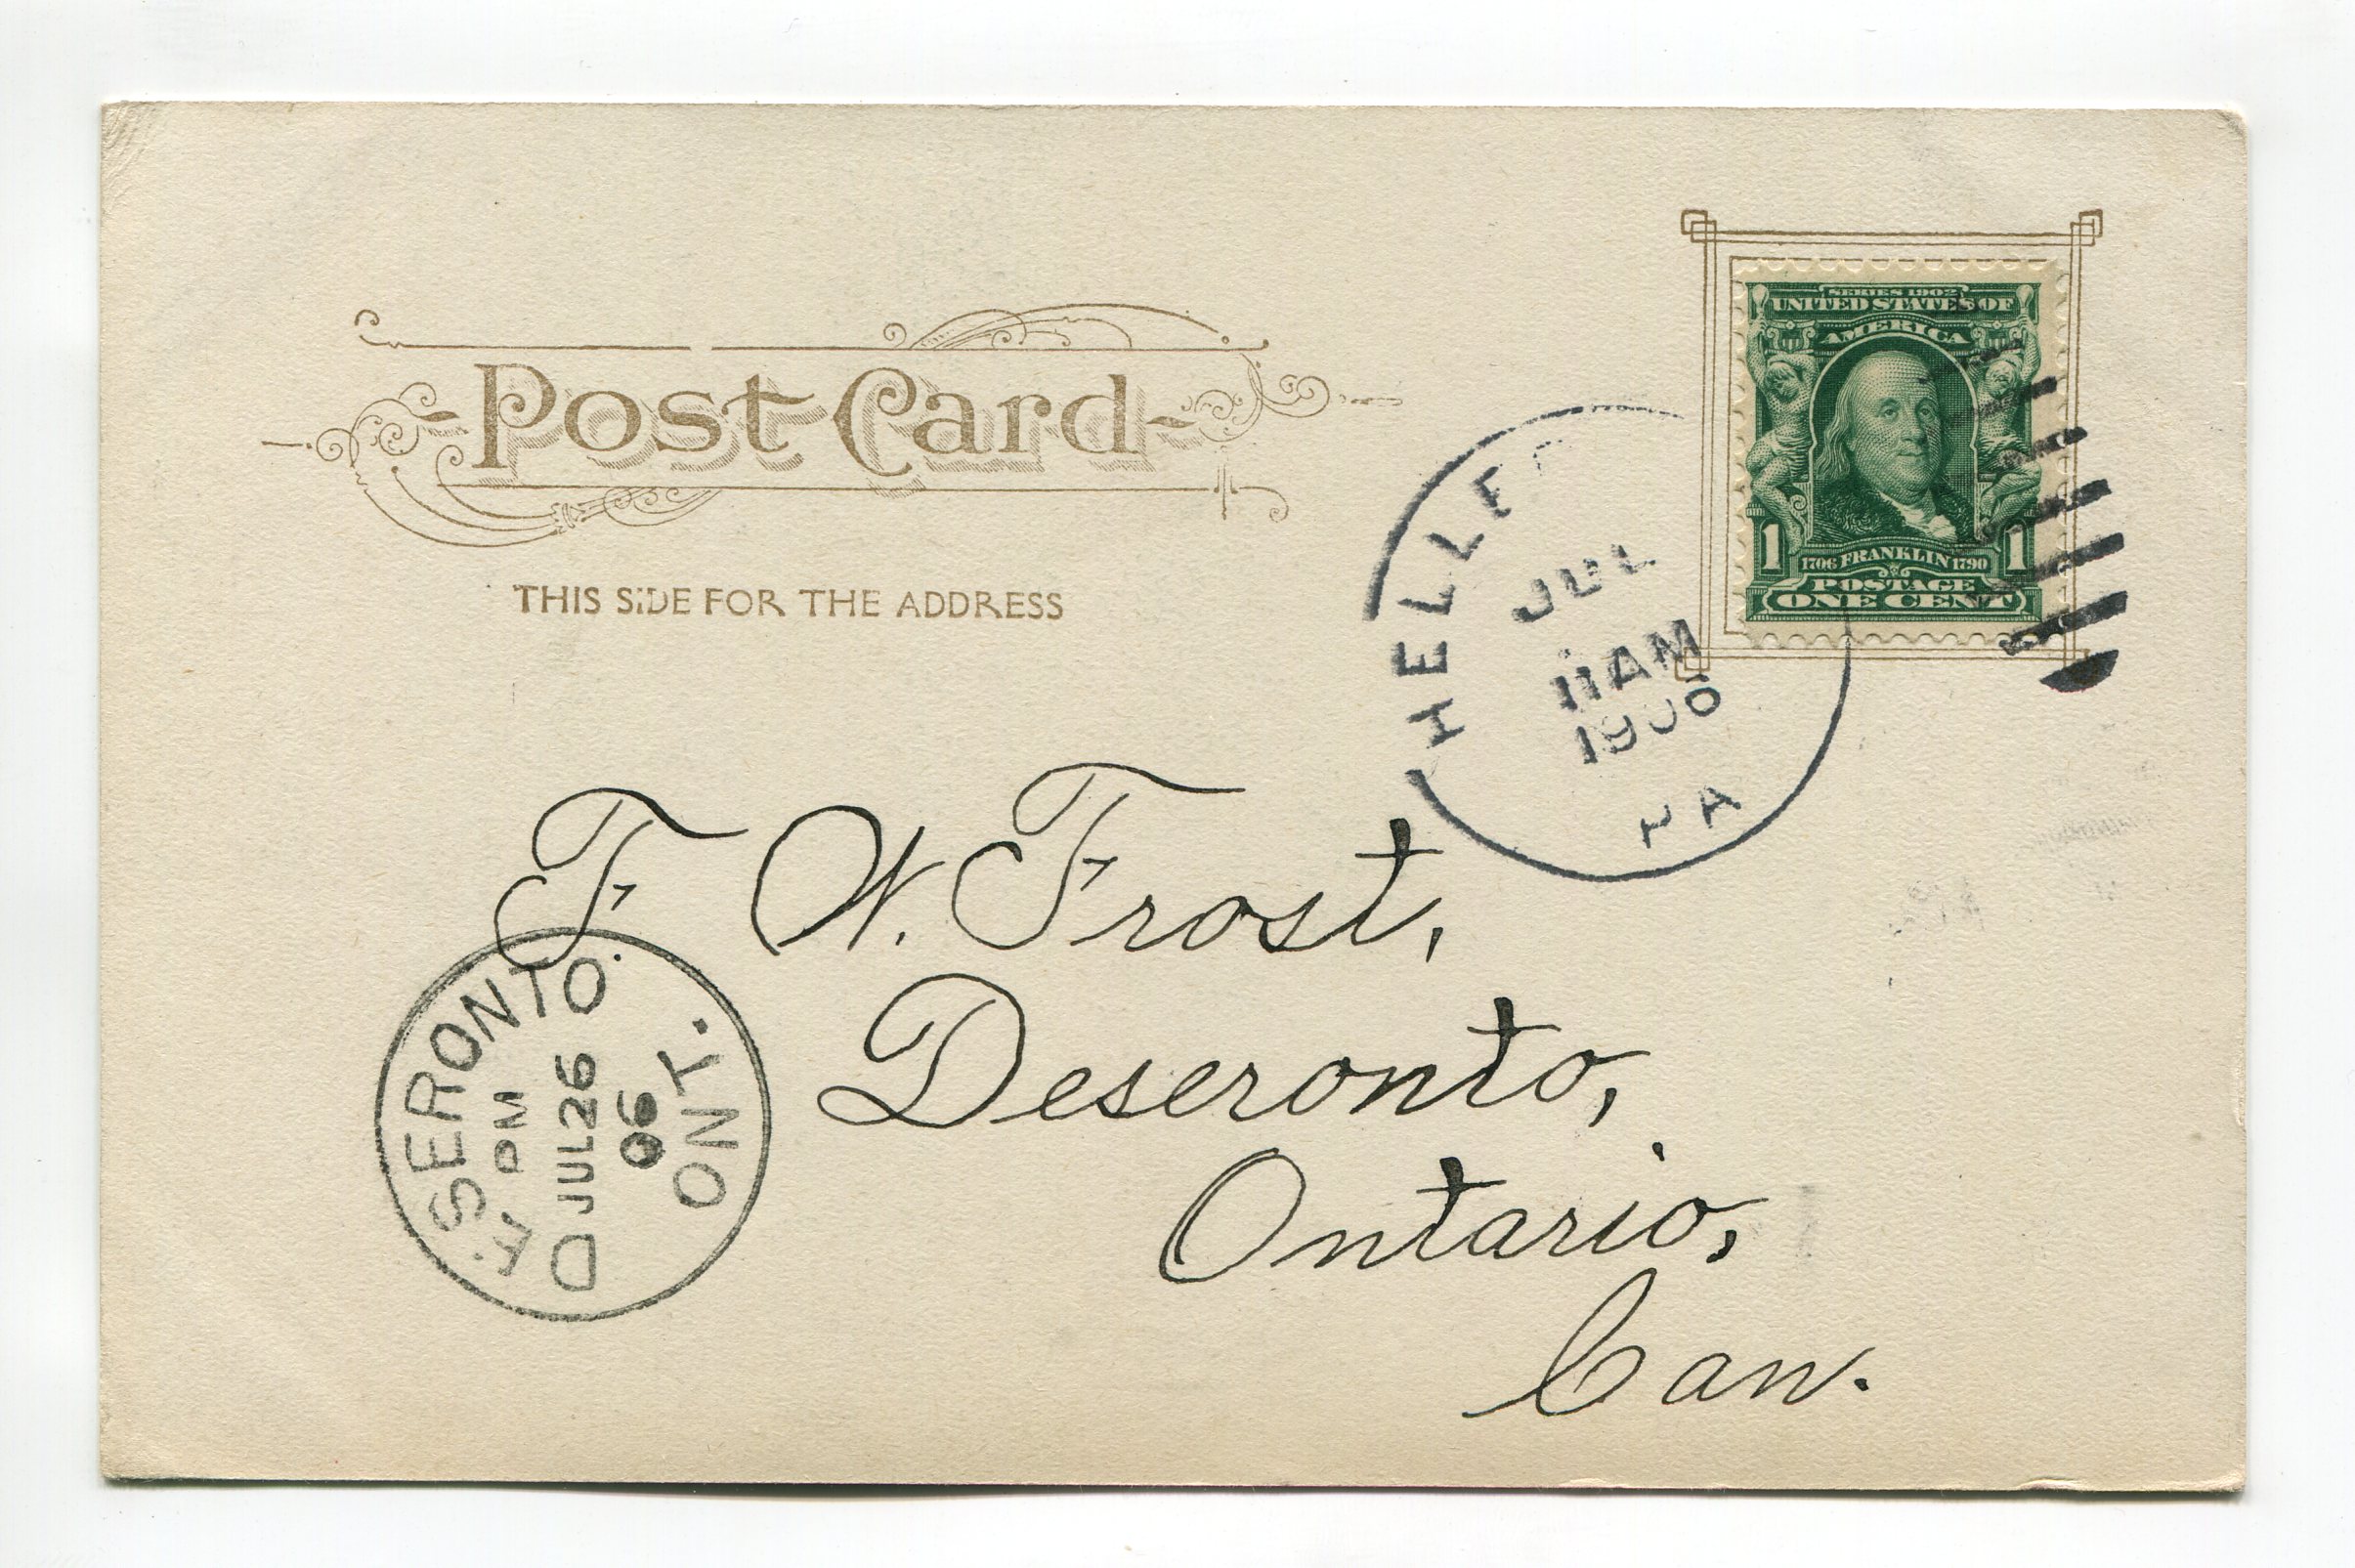 Post Card
THIS SIDE FOR THE ADDRESS
SERIES 1902
UNITED STATES OF
AMERICA
1 1
1706 FRANKLIN 1790
POSTAGE
ONE CENT
JUL
11 AM
1906
PA
F. W. Frost,
Deseronto,
Ontario,
Can.
DESERONTO.
PM
JUL 26
06
ONT.